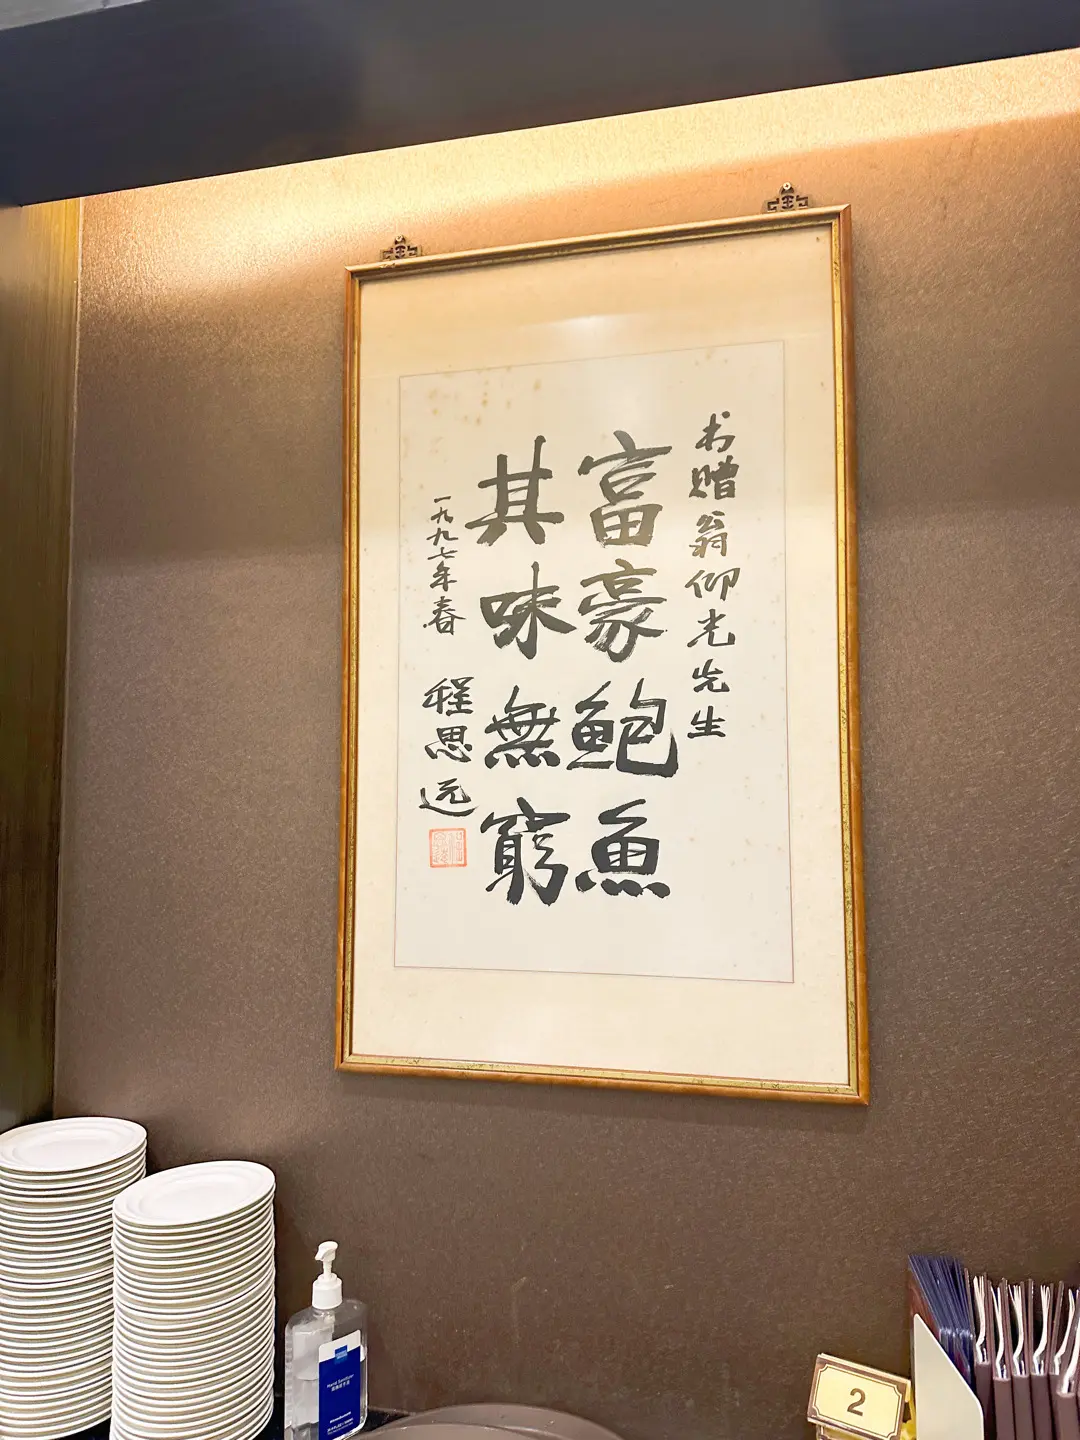 书赠翁仰光先生
富豪鲍魚
其味無窮
一九九七年春
程思远
Hand Sanitizer
2